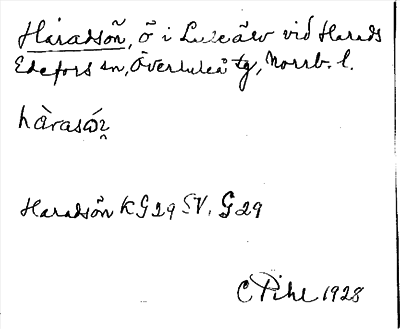 Haradsön, ö i Luleälv vid Harads
Edefors sn, Överluleå tg, Norrb. l.
hàrasó̀n̥
Haradsön KG29 SV, G29
C Pihl 1928